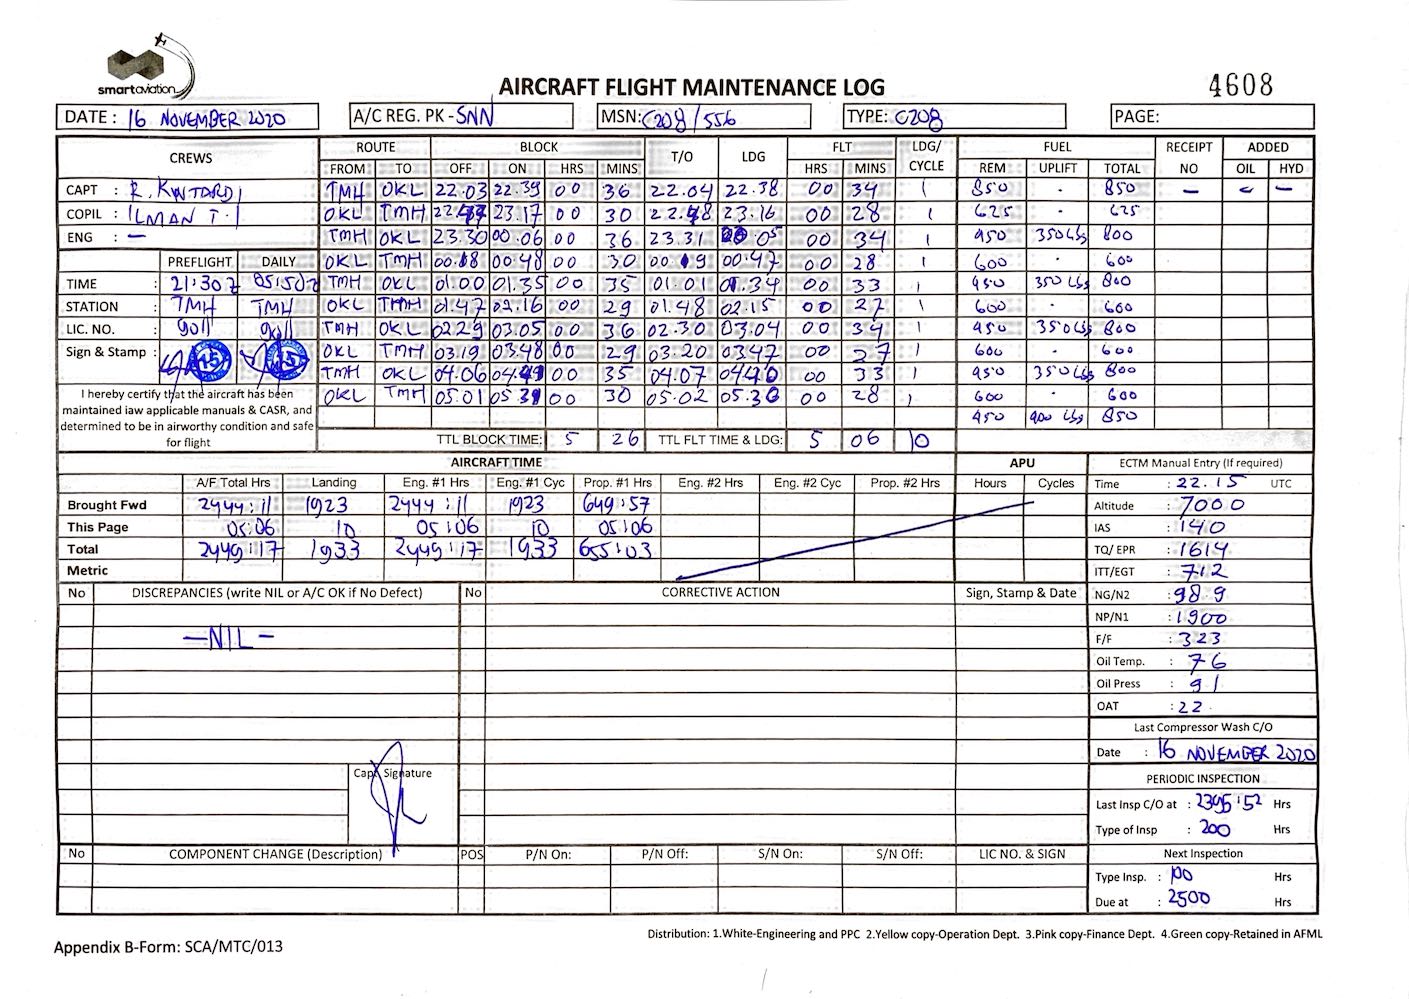 smartaviation
AIRCRAFT FLIGHT MAINTENANCE LOG
4608
DATE : 16 NOVEMBER 2020 A/C REG. PK - SNN MSN: C208/556 TYPE: C208 PAGE:
CREWS ROUTE BLOCK T/O LDG FLT LDG/ CYCLE FUEL RECEIPT NO ADDED
FROM TO OFF ON HRS MINS HRS MINS REM UPLIFT TOTAL OIL HYD
CAPT : R. TMH OKL 22.03 22.39 00 36 22.04 22.38 00 34 1 850 - 850 - - -
COPIL : ILMAN T. OKL TMH 22.47 23.17 00 30 22.48 23.16 00 28 1 625 - 625
ENG : - TMH OKL 23.30 00.06 00 36 23.31 00 05 00 34 1 450 350 Lbs 800
OKL TMH 00.18 00.48 00 30 00.19 00.47 00 28 1 600 - 600
PREFLIGHT DAILY
TIME : 21:30z 05:50z TMH OKL 01.00 01.35 00 35 01.01 01.34 00 33 1 450 350 Lbs 800
STATION : TMH TMH OKL TMH 01.47 02.16 00 29 01.48 02.15 00 27 1 600 - 600
LIC. NO. : 9011 9011 TMH OKL 02.29 03.05 00 36 02.30 03.04 00 34 1 450 350 Lbs 800
Sign & Stamp : 15 15 OKL TMH 03.19 03.48 00 29 03.20 03.47 00 27 1 600 - 600
TMH OKL 04.06 04.41 00 35 04.07 04.40 00 33 1 450 350 Lbs 800
OKL TMH 05.01 05.31 00 30 05.02 05.30 00 28 1 600 - 600
450 400 Lbs 850
I hereby certify that the aircraft has been
maintained iaw applicable manuals & CASR, and
determined to be in airworthy condition and safe
for flight
TTL BLOCK TIME: 5 26 TTL FLT TIME & LDG: 5 06 10
AIRCRAFT TIME APU ECTM Manual Entry (If required)
A/F Total Hrs Landing Eng. #1 Hrs Eng. #1 Cyc Prop. #1 Hrs Eng. #2 Hrs Eng. #2 Cyc Prop. #2 Hrs Hours Cycles
Brought Fwd 2444:11 1923 2444:11 1923 649:57
This Page 05:06 10 05:06 10 05:06
Total 2449:17 1933 2449:17 1933 655:03
Metric
Time : 22.15 UTC
Altitude : 7000
IAS : 140
TQ/ EPR : 1614
ITT/EGT : 712
NG/N2 : 98.9
NP/N1 : 1900
F/F : 323
Oil Temp. : 76
Oil Press : 91
OAT : 22
No DISCREPANCIES (write NIL or A/C OK if No Defect) No CORRECTIVE ACTION Sign, Stamp & Date
-NIL-
Capt Signature
Last Compressor Wash C/O
Date : 16 NOVEMBER 2020
PERIODIC INSPECTION
Last Insp C/O at : 2395:52 Hrs
Type of Insp : 200 Hrs
Next Inspection
Type Insp. : 100 Hrs
Due at : 2500 Hrs
No COMPONENT CHANGE (Description) POS P/N On: P/N Off: S/N On: S/N Off: LIC NO. & SIGN
Distribution: 1.White-Engineering and PPC 2.Yellow copy-Operation Dept. 3.Pink copy-Finance Dept. 4.Green copy-Retained in AFML
Appendix B-Form: SCA/MTC/013